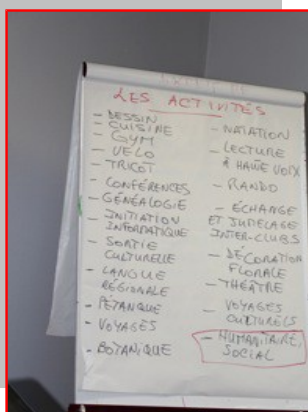 LES ACTIVITÉS
- DESSIN
- CUISINE
- GYM
- VELO
- TRICOT
- CONFÉRENCES
- GÉNÉALOGIE
- INITIATION
INFORMATIQUE
- SORTIE
CULTURELLE
- LANGUE
RÉGIONALE
- PÉTANQUE
- VOYAGES
- BOTANIQUE
- NATATION
- LECTURE
À HAUTE VOIX
- RANDO
- ÉCHANGE
ET JUMELAGE
INTER-CLUBS
- DÉCORATION
FLORALE
- THÉÂTRE
- VOYAGES
CULTURELS
- HUMANITAIRE,
SOCIAL